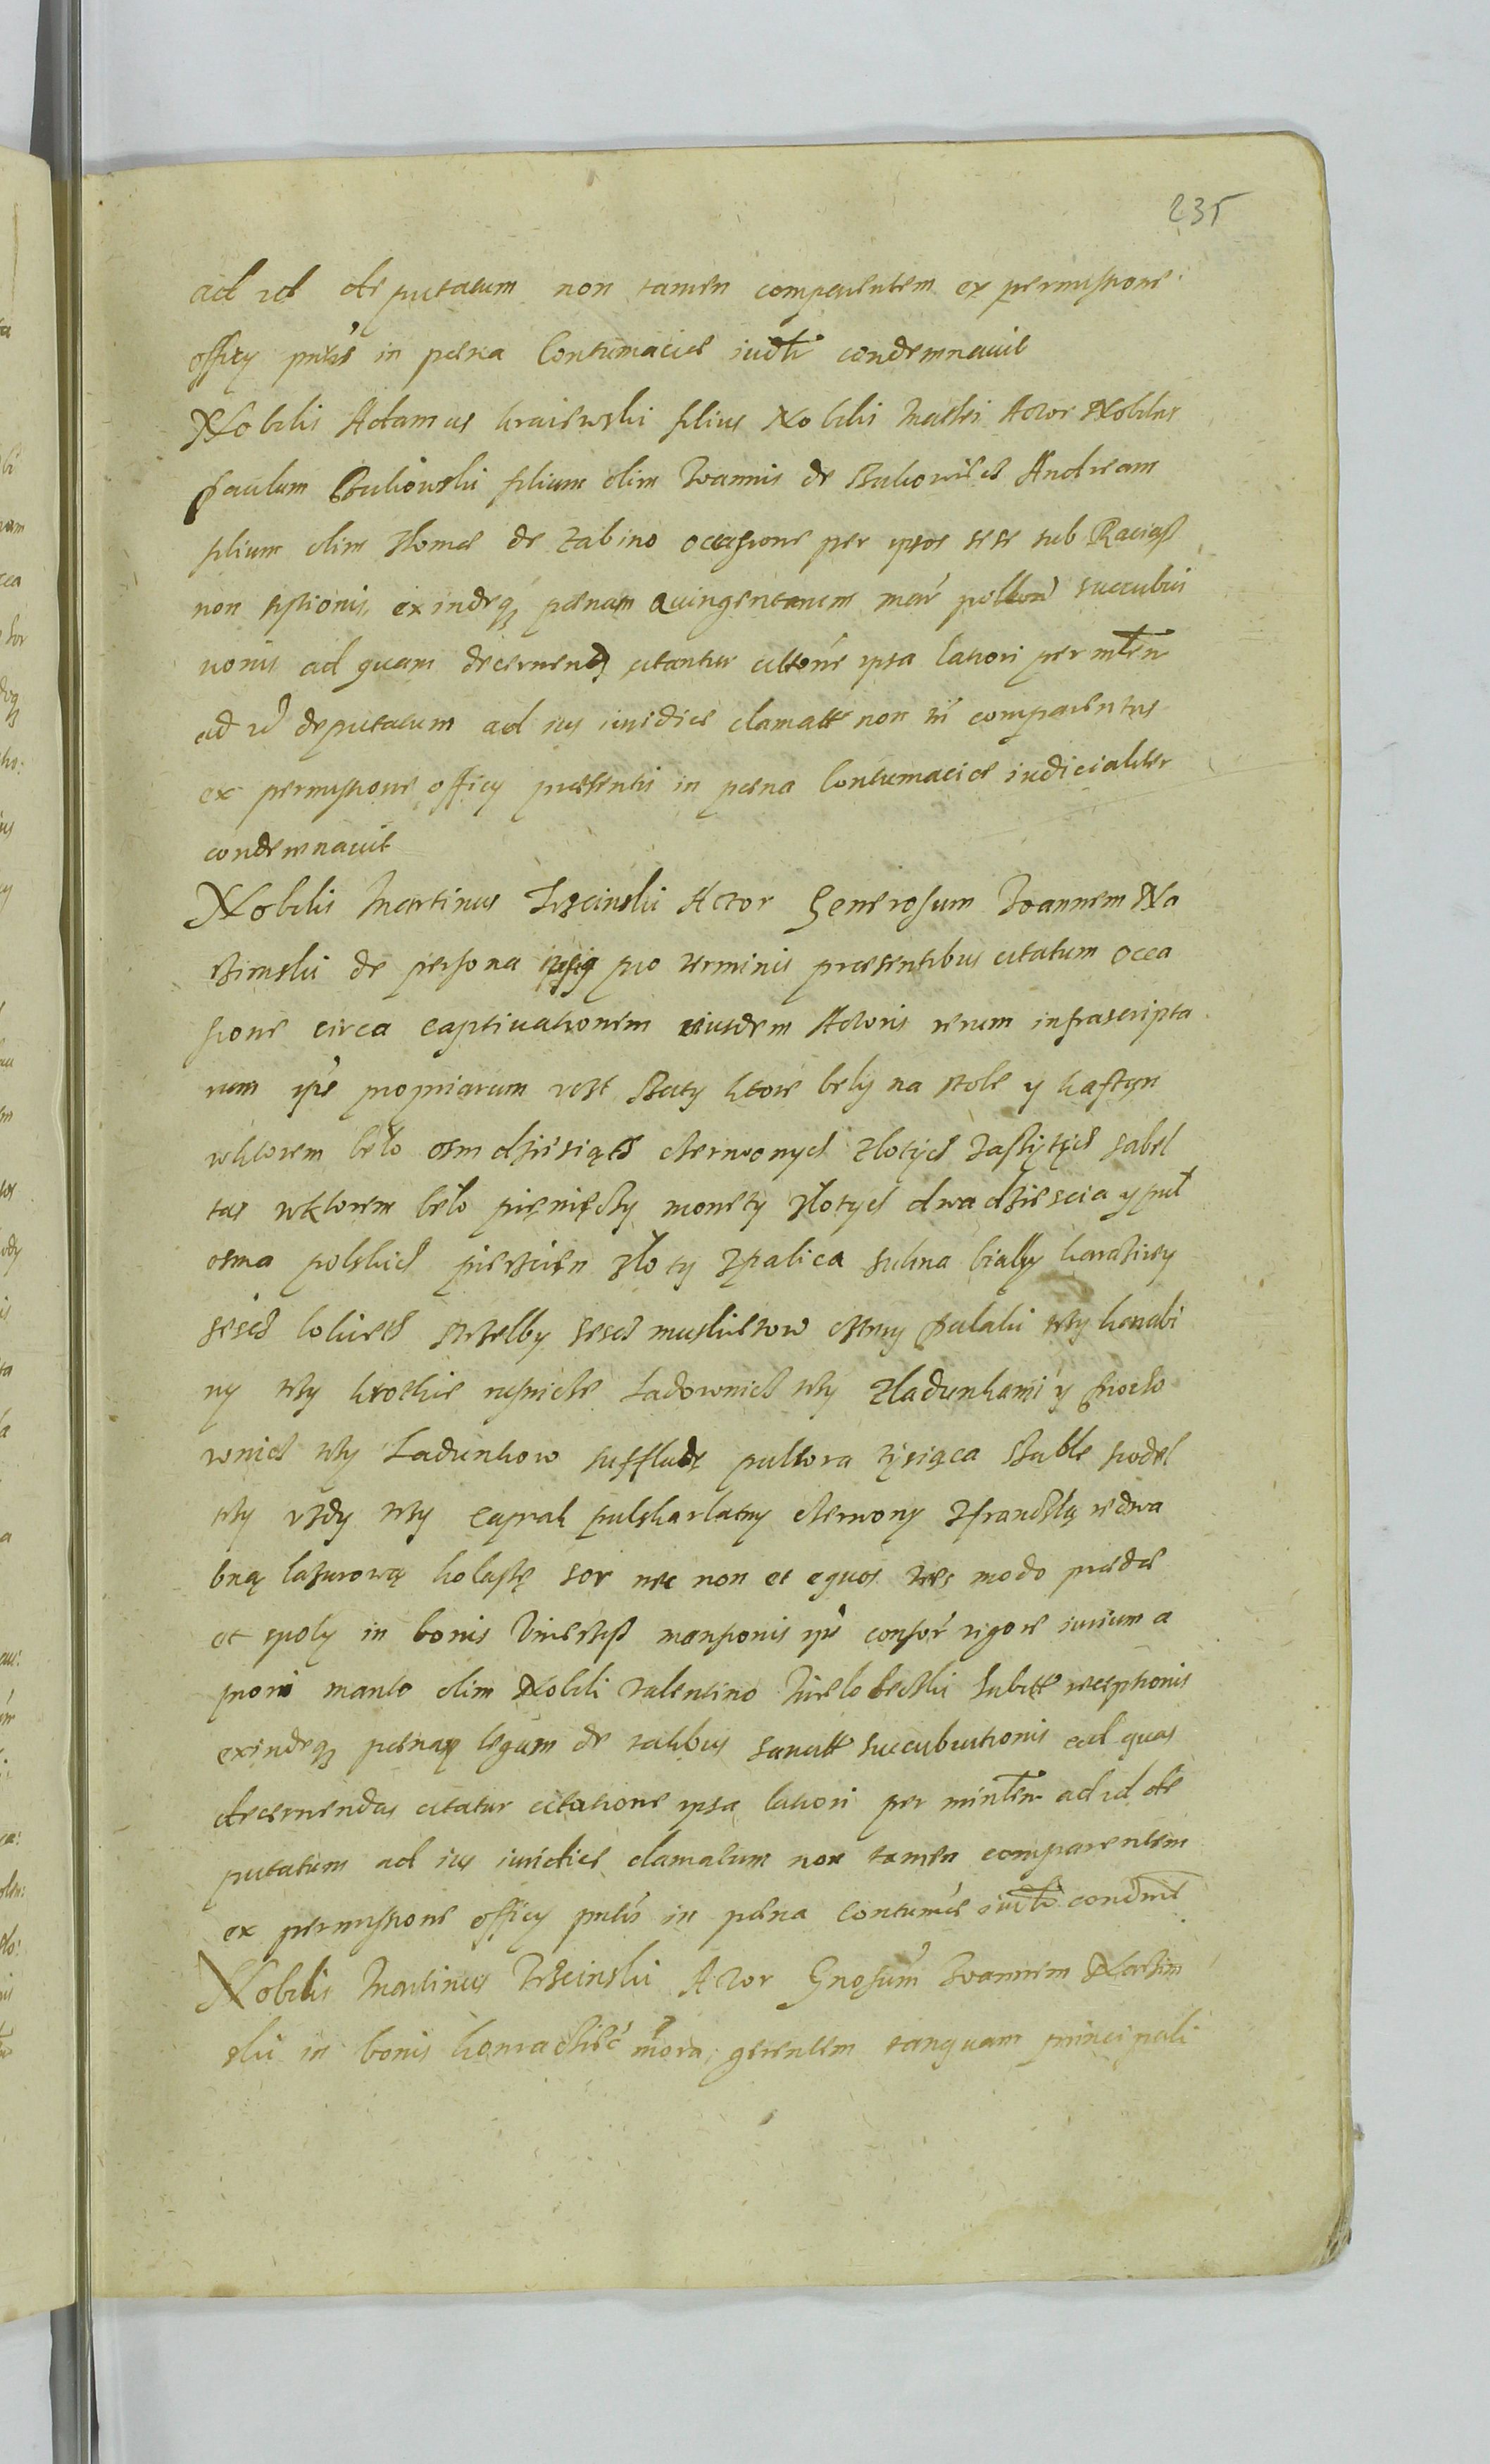 235
ad id deputatum non tamen comparentem ex permissione
officy pntis in pæna Contumaciæ iudlr condemnauit
Nobilis Adamus Kraiewski filius Nobilis Mathei Actor Nobiles
Paulum Bukowski filium olim Joannis de Bukowiec Andream
filium olim Thomæ de Zabino occasione per ipsos sese sub Raciąsz
non sistionis exindeq pænam Quingentarum mar pollon succubui
tionis ad quam decernend citantur citone ipsa latiori per mlen
ad id deputatum ad ius iuridice clamatt non tn comparentes
ex permissione officy præsentis in pæna Contumaciæ iudicialiter
condemnauit
Nobilis Martinus Trzcinski Actor Generosum Joannem Na
rzimski de persona pro terminis præsentibus citatum occa
sione circa captiuationem eiusdem Actoris rerum infrascripta
rum ips propriarum vest Szaty ktore bely na stole y kaftan
wktorem beło osm dziesiąts czerwonych złotych zaszytych sabel
tas wktorem beło pieniędzy monety złotych dwadziescia y puł
osma polskich pierscien złoty Spalica sukna biały karaziey
sesc lokiets strzelby sesc muskietow cztery Pulaki trzy karabi
ny trzy krotkie rusnicze Ladownics trzy zładunkami y Proch
wnics trzy Ładunkow pultora tysiąca Szable siodel
trzy uzdy trzy caprak pulszkarlatny czerwony zfrandzlą iedwa
bną lazurową nec non et equos tres modo prædæ
et spoly in bonis mansionis ips confor rigore iurium a
priori manto olim Nobili Valentino Wielobedzki receptionis
exindeq pænarq legum de talibus sancitt succubuitionis ad quas
decernendas citatur citatione ipsa latiori per minlem ad id de
putatum ad ius iuridice clamatum non tamen comparentem
ex permissione officy pntis in pæna contumæ iudlr condmt
Nobilis Martinus Trzcinski Actor Gnosum Joannem Narzim
ski in bonis mora gerentem tanquam principali